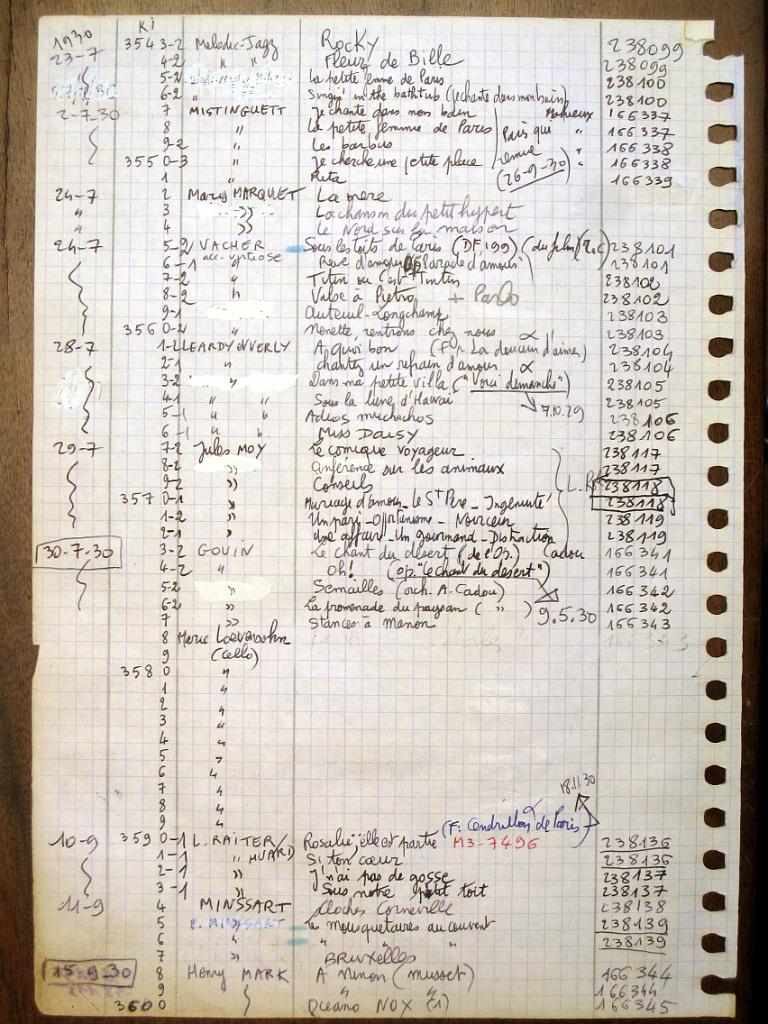 1930 KI
23-7 354 3-2 Melodic-Jazz Rocky 238099
4-2 " " Fleur de Bille 238099
5-2 La petite femme de Paris 238100
6-2 " Singin' in the bathtub (je chante dans mon bain) 238100
2-7-30 7 MISTINGUETT Je chante dans mon bain 166337
8 " La petite femme de Paris Paris qui " 166337
9-2 " Les barbus remue " 166338
355 0-3 " Je cherche une petite place (26-9-30) 166338
1 " Rita 166339
24-7 2 Mary MARQUET La mère
" 3 " La chanson du petit hypert
" 4 " Le Nord sur la maison
24-7 5-2 VACHER Sous les toits de Paris (DF 199) (du film) 238101
6-1 acc. virtuose Rêve d'amour "Parade d'amour" 238101
7-2 " Titin ou c'est Tintin 238102
8-2 " Valse à Pietro + 238102
9-1 Auteuil-Longchamp 238103
356 0-2 " Nénette, rentrons chez nous α 238103
28-7 1-2 LEARDY et VERLY A quoi bon (F. La douceur d'aimer) 238104
2-1 " chantez un refrain d'amour α 238104
3-2 " Dans ma petite villa ("Voici dimanche") 238105
4-1 " " Sous la lune d'Hawaï 7.10.29 238105
5-1 " " Adios muchachos 238106
6-1 " " Miss Daisy 238106
29-7 7-2 Jules MOY Le comique voyageur 238117
8-2 " Conférence sur les animaux 238117
9-2 " Conseils L.R. 238118
357 0-1 " Mariage d'amour - Le St Père - Ingénuité 238118
1-2 " Un pari - Opportunisme - Noirceur 238119
2-1 " affaire - Un gourmand - Distraction 238119
30-7-30 3-2 GOUIN Le chant du désert (de l'Op.) Cadou 166341
4-2 " Oh! (op. "Le chant du désert") 166341
5-2 Semailles (orch. A. Cadou) 166342
6-2 " La promenade du paysan ( " ) 9.5.30 166342
7 " Stances à Manon 166343
8 Marie Loevensohn
9 (Cello)
358 0 "
1 "
2 "
3 "
4 "
5 "
6 "
7 "
8 " 18.11.30
9 " (F. Cendrillon de Paris)
10-9 359 0-1 L. RAITER/ Rosalie, elle est partie M3-7496 238136
1-1 " HUARD) Si ton cœur 238136
2-1 " J'n'ai pas de gosse 238137
3-1 " Sous notre petit toit 238137
11-9 4 MINSSART Cloches Corneville 238138
5 P. MINSSART Les mousquetaires au couvent 238139
6 " " " " 238139
7 " BRUXELLES
15-9-30 8 Henry MARK A Ninon (Musset) 166344
9 166344
360 0 Oceano NOX (1) 166345